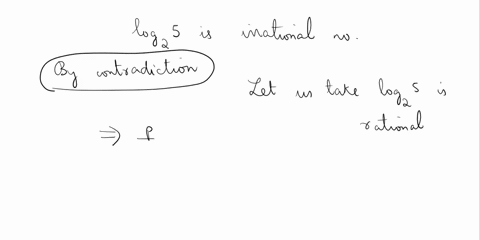 log₂5 is irrational no.
By contradiction
Let us take log₂5 is
rational
⇒ p